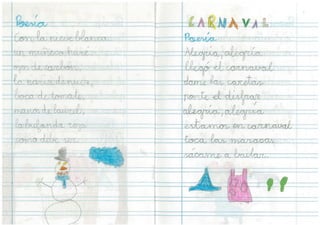 Poesía
Con la nieve blanca
un muñeco haré.
ojos de carbón,
la nariz de nuez,
boca de tomate,
manos de laurel,
la bufanda roja
como debe ser.
CARNAVAL
Poesía
Alegría, alegría
llegó el carnaval
dame las caretas
ponte el disfraz
alegría, alegría
estamos en carnaval
toca las maracas
sácame a bailar.